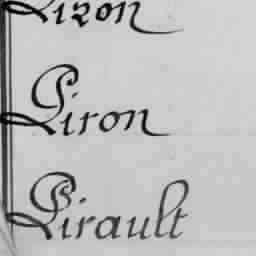 Lizon
Piron
Pirault